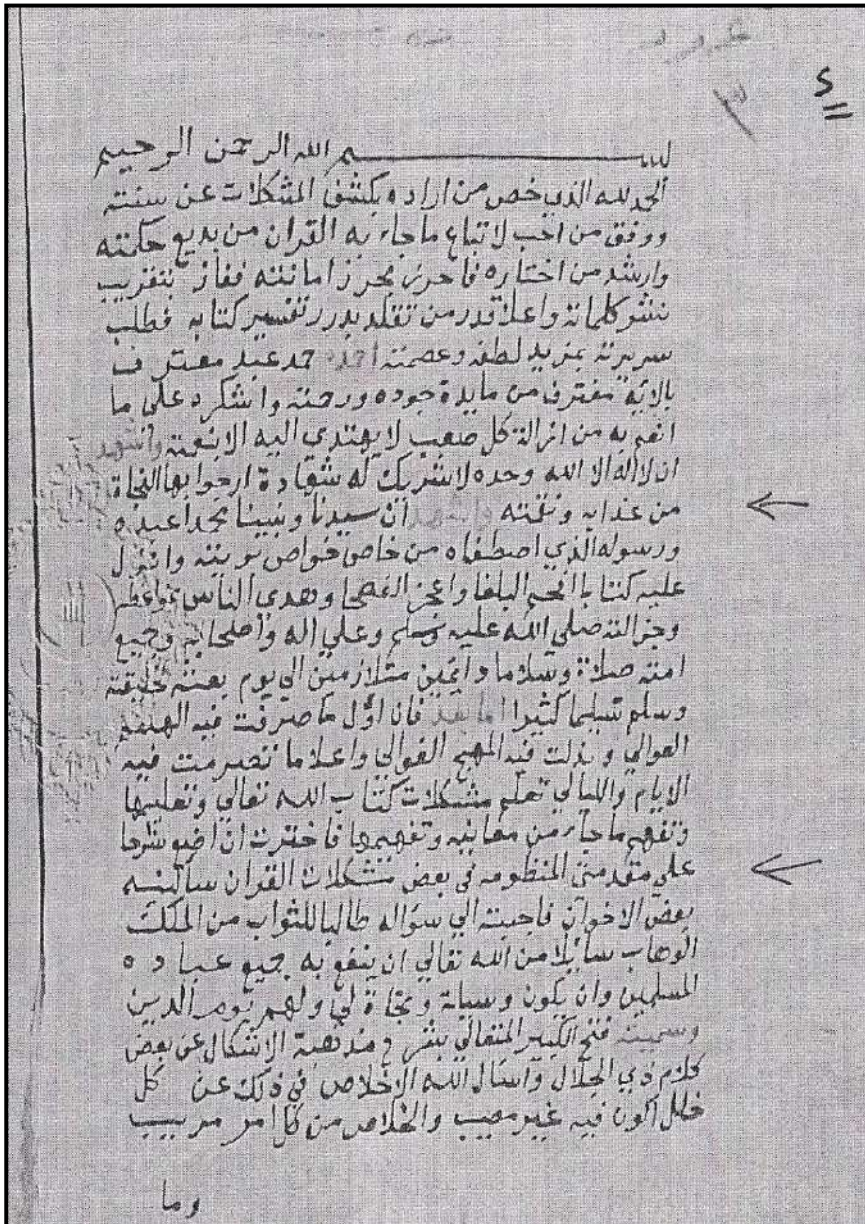 بسم الله الرحمن الرحيم
الحمد لله الذي خص من اراده بكشف المشكلات عن سنته
ووفق من احب لاتباع ما جاء به القران من بديع حكمته
وارشد من اختاره فاحرز بحرز امانته ففاز بتقريب
نشر كلماته واعلا قدر من تقلد بدرر تفسير كتابه فطلب
سريرته بمزيد لطفه وعصمته احمده حمد عبد معترف
بالايه مغترف من مايدة جوده ورحمته واشكره على ما
انعم به من ازالة كل صعب لا يهتدي اليه الا بنعمته واشهد
ان لا اله الا الله وحده لا شريك له شهادة ارجوا بها النجاة
من عذابه ونقمته واشهد ان سيدنا ونبينا محمدا عبده
ورسوله الذي اصطفاه من خاص خواص بريته وانزل
عليه كتابا افحم البلغا واعجز الفصحا وهدي الناس بمواعظه
وجزالته صلى الله عليه وسلم وعلي اله واصحابه وجميع
امته صلاة وسلاما دايمين متلازمين الي يوم بعثه خليقته
وسلم تسليما كثيرا اما بعد فان اول ما صرفت فيه الهمم
العوالي وبذلت فيه المهج الغوالي واعلا ما تصرمت فيه
الايام والليالي تعلم مشكلات كتاب الله تعالي وتعليمها
وتفهم ما جاء من معانيه وتفهيمها فاخترت ان اضع شرحا
على مقدمتي المنظومه في بعض مشكلات القران سالنيه
بعض الاخوان فاجبته الي سؤاله طالبا للثواب من الملك
الوهاب سايلا من الله تعالي ان ينفع به جميع عباده
المسلمين وان يكون وسيلة ونجاة لي ولهم يوم الدين
وسميته فتح الكبير المتعالي بشرح مذهبة الاشكال عن بعض
كلام ذي الجلال واسال الله الاخلاص في ذلك عن كل
خلل اكون فيه غير مصيب والخلاص من كل امر مريب
وما